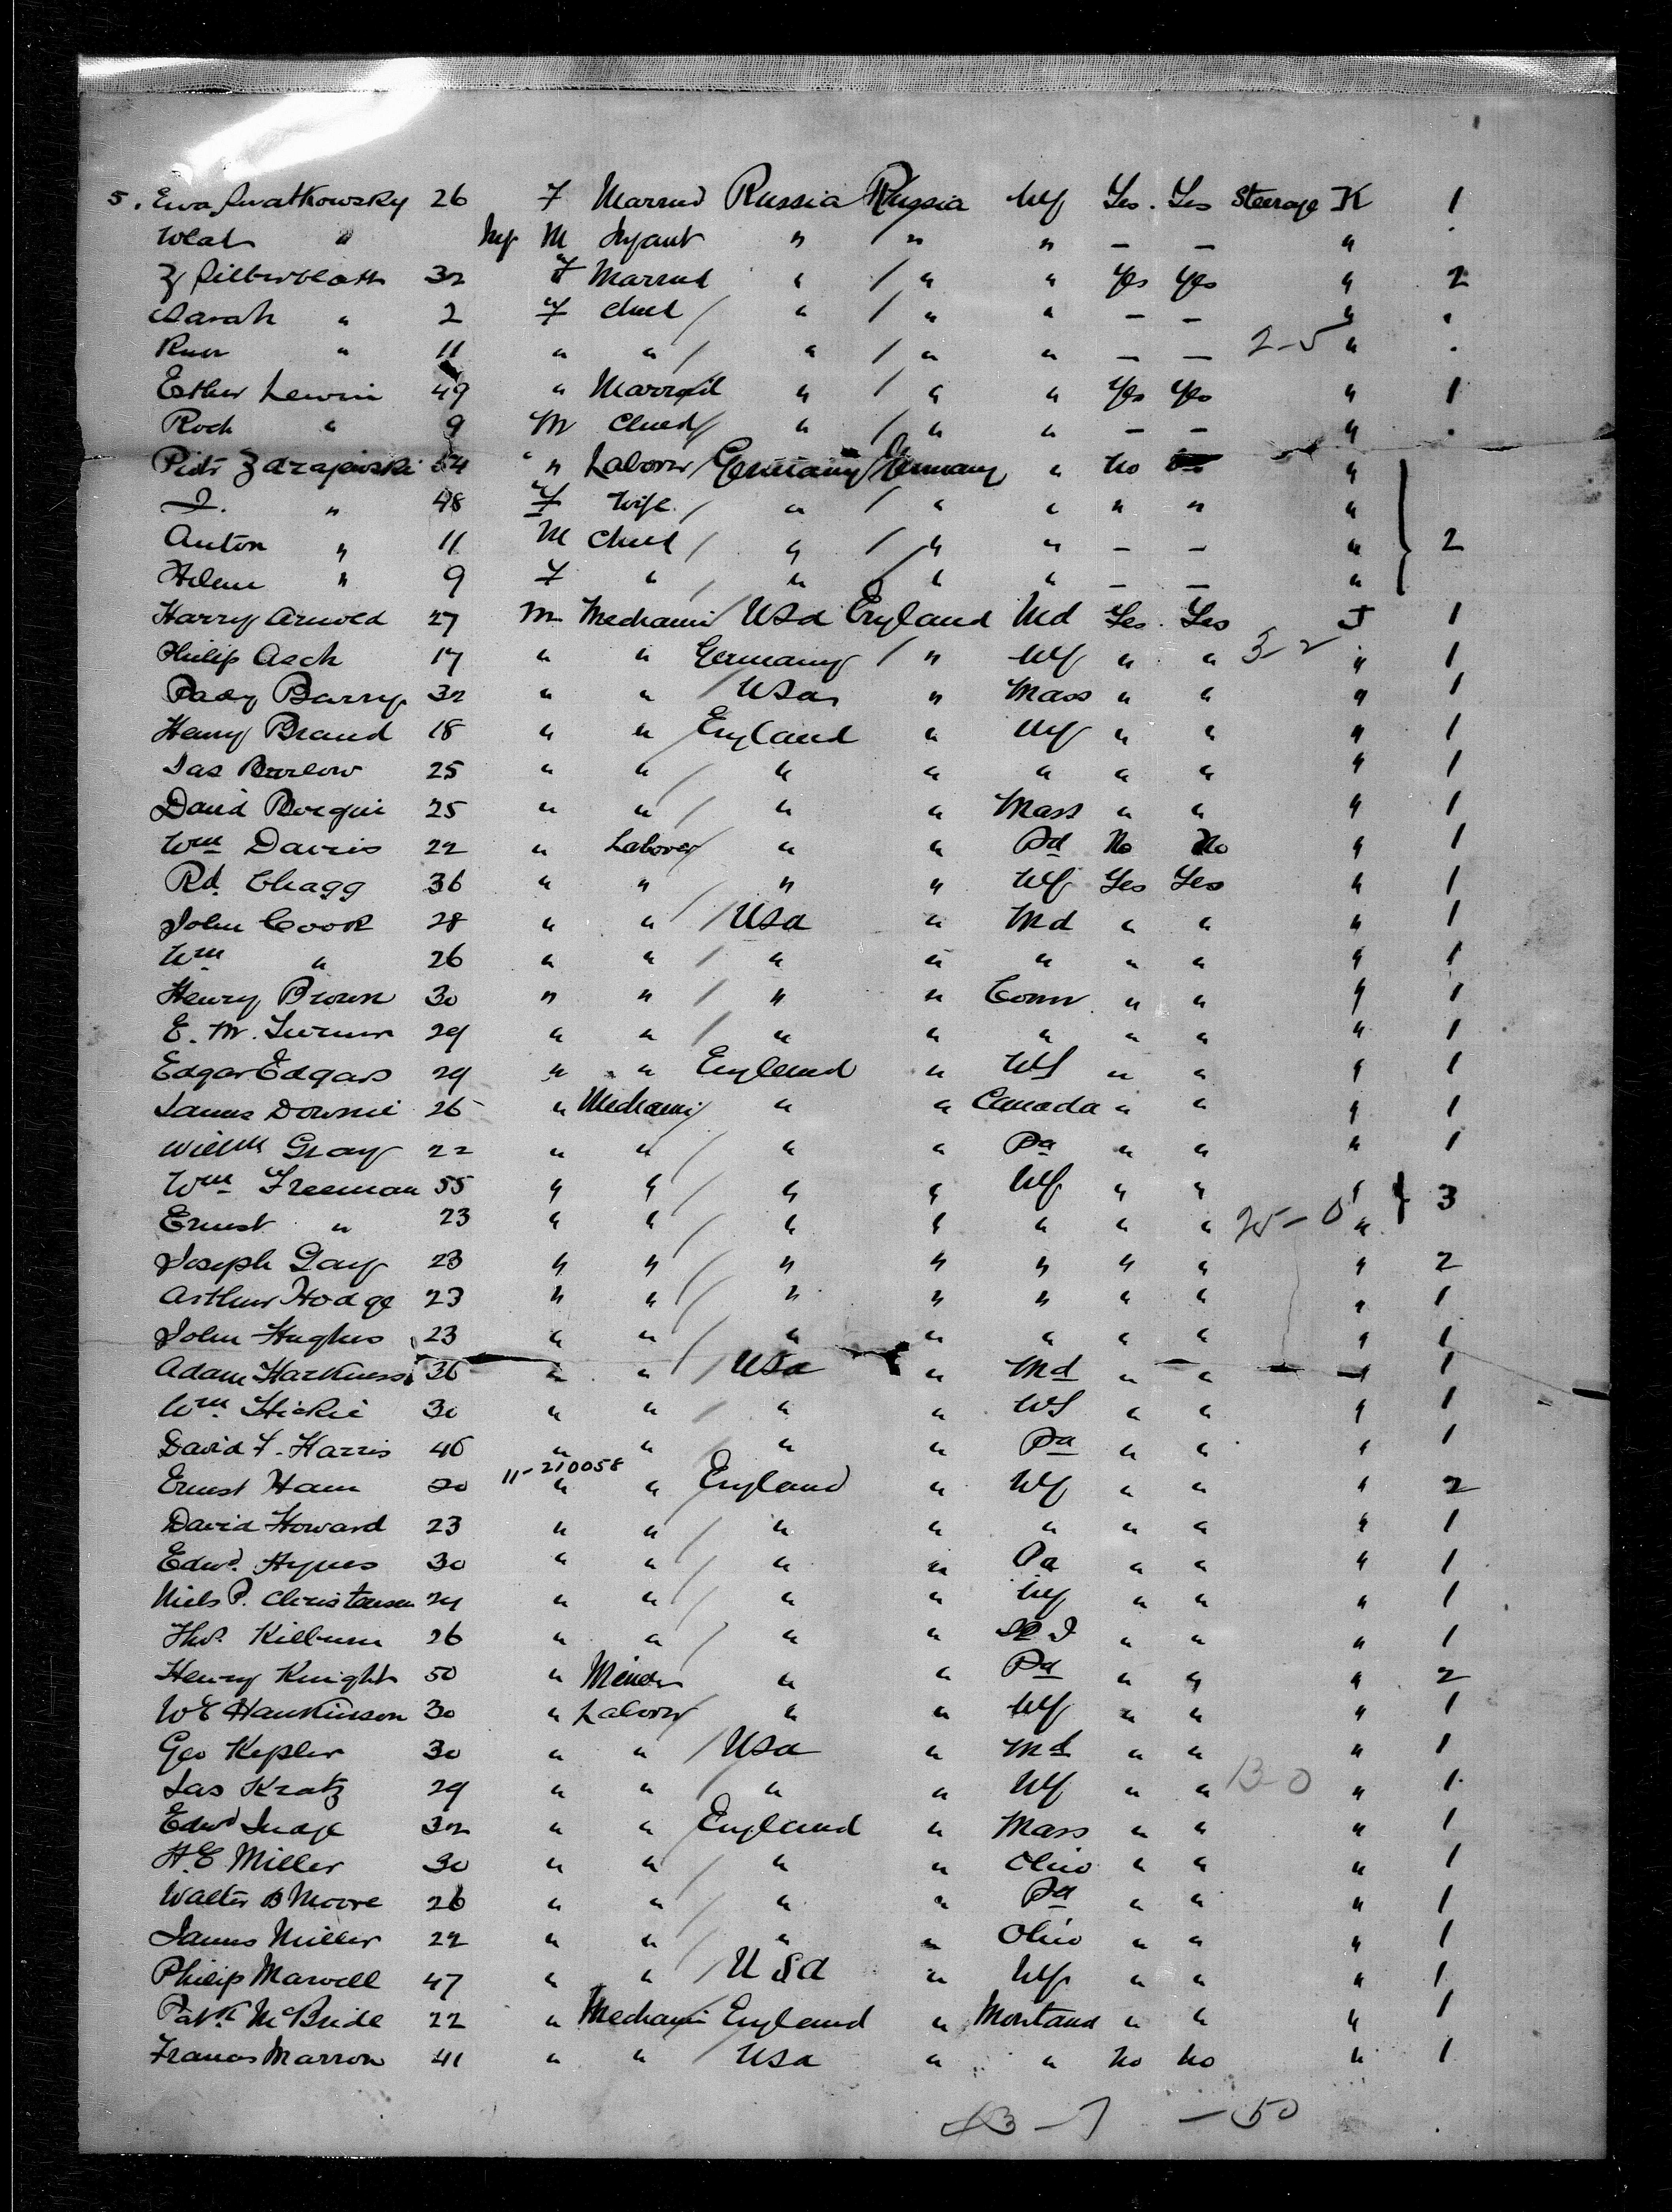 5. Ewa Swatkowsky 26 F Married Russia Russia NY Yes. Yes Steerage K 1
" Inf M Infant " " " — — "
32 F Married " / " " Yes Yes " 2
Sarah " 2 F Child / " / " " — — "
" 11 " " / " / " " — — 2-5 "
Esther Lewin 49 " Married " / " " Yes Yes " 1
" 9 M Child / " / " " — — "
Piotr " Laborer / Germany / Germany " No "
I. " 48 F Wife / " / " " " " "
Anton " 11 M Child / " / " " — — " } 2
Helene " 9 F " / " / " " — — "
Harry Arnold 27 M Mechanic / USA England Md Yes Yes J 1
Philip Asch 17 " " Germany / " NY " " 3-2 " 1
Pady Barry 32 " " / USA " Mass " " " 1
Henry Brand 18 " " England " NY " " " 1
Jas Barlow 25 " " / " " " " " " 1
David 25 " " / " " Mass " " " 1
Wm Davis 22 " Laborer / " " Pa No No " 1
Rd. Chagg 36 " " / " " NY Yes Yes " 1
John Cook 28 " " / USA " Md " " " 1
Wm " 26 " " / " " " " " " 1
Henry Brown 30 " " / " " Conn " " " 1
E. M. Turner 29 " " / " " " " " " 1
Edgar Edgars 29 " " England " NY " " " 1
James Downie 25 " Mechanic / " " Canada " " " 1
Willm Gray 22 " " / " " Pa " " " 1
Wm Freeman 55 " " / " " NY " " " } 3
Ernest " 23 " " / " " " " " 25-0 "
Joseph Gay 23 " " / " " " " " " 2
Arthur Hodge 23 " " / " " " " " " 1
John Hughes 23 " " / " " " " " " 1
Adam Harkness 36 " " / USA " Md " " " 1
Wm Hickie 30 " " / " " NY " " " 1
David F. Harris 46 " " / " " Pa " " " 1
11-210058
Ernest Ham 20 " " England " NY " " " 2
David Howard 23 " " / " " " " " " 1
Edwd. Hynes 30 " " / " " Pa " " " 1
Niels P. Christensen 24 " " / " " NY " " " 1
Thos. Kilburn 26 " " / " " R I " " " 1
Henry Knight 50 " Miner " " Pa " " " 2
W E Hankinson 30 " Laborer / " " NY " " " 1
Geo Kepler 30 " " / USA " Md " " " 1
Jas Kratz 29 " " / " " NY " " 13-0 " 1
Edwd Judge 32 " " England " Mass " " " 1
H. E Miller 30 " " / " " Ohio " " " 1
Walter B Moore 26 " " / " " Pa " " " 1
James Miller 22 " " / " " Ohio " " " 1
Philip Marvell 47 " " / USA " NY " " " 1
Patk McBride 22 " Mechanic England " Montana " " " 1
Francis Marron 41 " " / USA " " No No " 1
43-7 -50